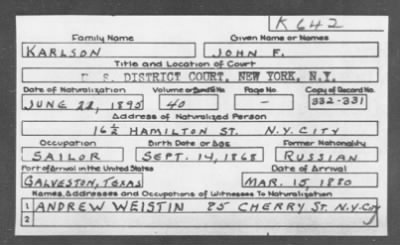 K642
Family Name Given Name or Names
KARLSON JOHN F.
Title and Location of Court
U. S. DISTRICT COURT, NEW YORK, N.Y.
Date of Naturalization Volume or Bundle No. Page No. Copy of Record No.
JUNE 22, 1895 40 - 332-331
Address of Naturalized Person
16½ HAMILTON ST. N.Y.CITY
Occupation Birth Date or Age Former Nationality
SAILOR SEPT. 14, 1868 RUSSIAN
Port of Arrival in the United States Date of Arrival
GALVESTON, TEXAS MAR. 15, 1880
Names, Addresses and Occupations of Witnesses To Naturalization
1 ANDREW WEISTIN 85 CHERRY ST. N.Y.City
2